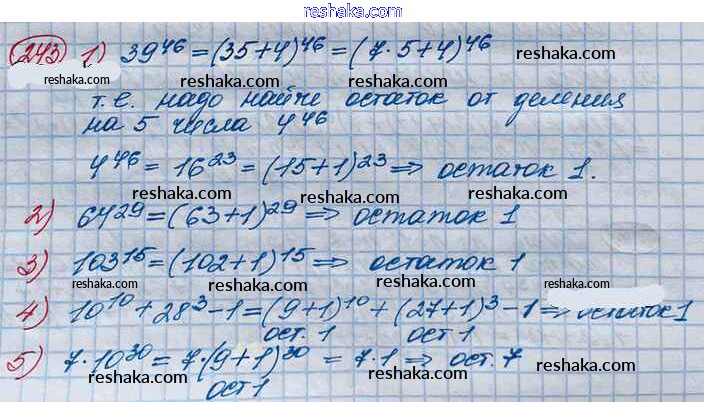 reshaka.com
243 1) 39^46 = (35+4)^46 = (7·5+4)^46
reshaka.com reshaka.com reshaka.com
т.е. надо найти остаток от деления
на 5 числа 4^46
reshaka.com reshaka.com
4^46 = 16^23 = (15+1)^23 ⇒ остаток 1.
reshaka.com reshaka.com
2) 64^29 = (63+1)^29 ⇒ остаток 1
reshaka.com reshaka.com reshaka.com
3) 103^15 = (102+1)^15 ⇒ остаток 1
reshaka.com reshaka.com
4) 10^10 + 28^3 - 1 = (9+1)^10 + (27+1)^3 - 1 ⇒ остаток 1
reshaka.com ост. 1 ост 1 reshaka.com
5) 7·10^30 = 7·(9+1)^30 = 7·1 ⇒ ост. 7
reshaka.com ост 1 reshaka.com reshaka.com